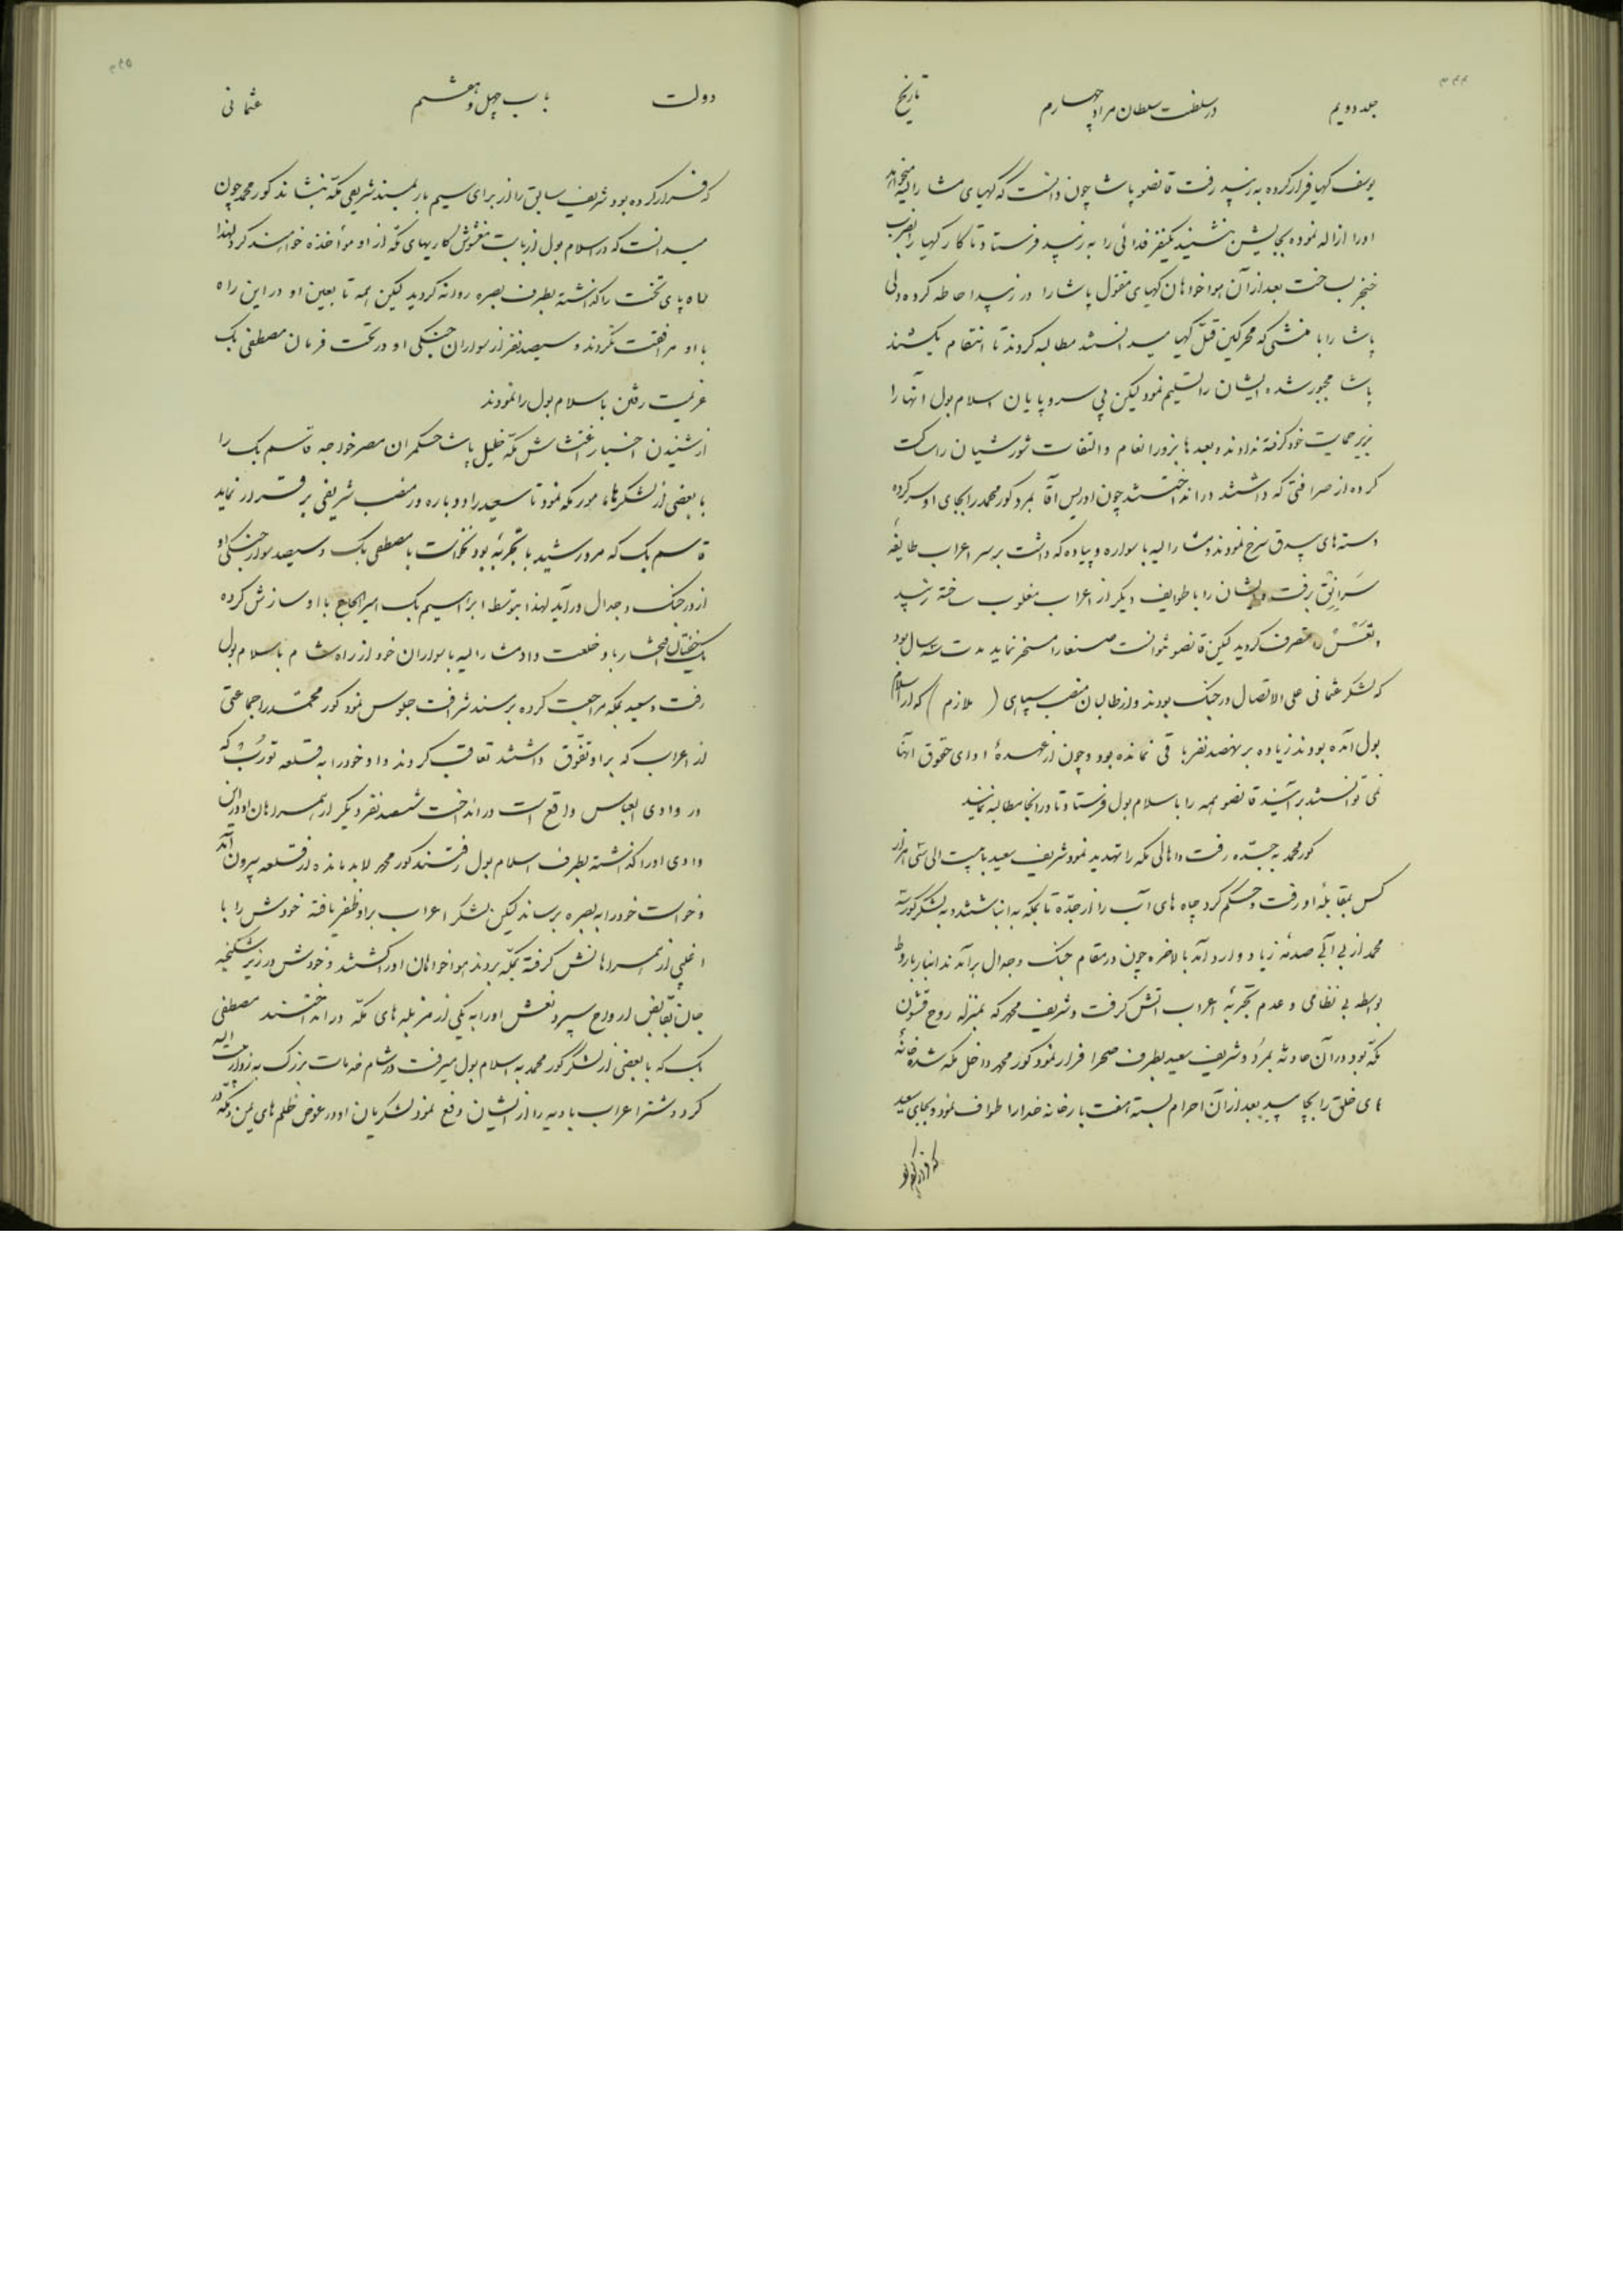 ۴۴۴
جلد دویم در سلطنت سلطان مراد چهارم تاریخ
یوسف کهیا فرار کرده به زبید رفت قانصو پاشا چون دانست که کهیای مشارالیه میخواهد
اورا ازاله نموده بجایش بنشیند یکنفر فدائی را به زبید فرستاد تا کار کهیا را بضرب
خنجر بساخت بعد از آن هواخواهان کهیای مقتول پاشا را در زبید احاطه کرده ولی
پاشا را با منشی که محرکین قتل کهیا میدانستند مطالبه کردند تا انتقام بکشند
پاشا مجبور شده ایشان را تسلیم نمود لیکن بی سر و پایان اسلام بول آنها را
بزیر حمایت خود گرفته ندادند و بعدها بزور انعام و التفات شورشیان را ساکت
کرده از صرافتی که داشتند در انداختند چون ادریس آقا بمرد کور محمد را بجای او سر کرده
دسته های بیدق سرخ نمودند و مشارالیه با سواره و پیاده که داشت بر سر اعراب طایفه
سرانق برفت و ایشان را با طوایف دیگر از اعراب مغلوب ساخته زبید
و تعس را متصرف گردید لیکن قانصو نتوانست صنعا را مسخر نماید مدت سه سال بود
که لشکر عثمانی علی الاتصال در جنگ بودند و از طالبان منصب سپاهی ( ملازم ) که از اسلام
بول آمده بودند زیاده بر نهصد نفر باقی نمانده بود و چون از عهدهٔ ادای حقوق آنها
نمی توانستند بر آیند قانصو همه را باسلام بول فرستاد تا در آنجا مطالبه نمایند
کور محمد به جده رفت و اهالی مکه را تهدید نمود شریف سعید با بیست الی سی هزار
کس بمقابلهٔ او رفت و حکم کرد چاه های آب را از جده تا بمکه به انباشتند و به لشکر کور
محمد از بی آبی صدمهٔ زیاد وارد آمد بالاخره چون در مقام جنگ و جدال بر آمدند انبار باروط
بواسطه بی نظامی و عدم تجربهٔ اعراب آتش گرفت و شریف محمد که بمنزله روح قشون
مکه بود در آن حادثه بمرد و شریف سعید بطرف صحرا فرار نمود کور محمد داخل مکه شده خانه
های خلق را بچاپید بعد از آن احرام بسته هفت بار خانه خدا را طواف نمود و بجای سعید
که قرار کرده بود
۴۴۵
دولت باب چهل و هشتم عثمانی
که قرار کرده بود شریف سابق را از برای سیم بار بمسند شریفی مکه بنشاند کور محمد چون
میدانست که در اسلام بول از بابت مغشوش کاریهای مکه از او مؤاخذه خواهند کرد لهذا
راه پای تخت را گذاشته بطرف بصره روانه گردید لیکن همه تابعین او در این راه
با او مرافقت نکردند و سیصد نفر از سواران جنگی او در تحت فرمان مصطفی بک
عزیمت رفتن باسلام بول را نمودند
از شنیدن اخبار اغتشاش مکه خلیل پاشا حکمران مصر خواجه قاسم بک را
با بعضی از لشکرها مامور مکه نمود تا سعید را دوباره در منصب شریفی برقرار نماید
قاسم بک که مرد رشید با تجربه بود نخواست با مصطفی بک و سیصد سوار جنگی او
از در جنگ و جدال در آید لهذا بتوسط ابراهیم بک امیر الحاج با او سازش کرده
یک خفتان افتخار باو خلعت داد مشارالیه با سواران خود از راه شام باسلام بول
رفت و سعید بمکه مراجعت کرده بر مسند شرافت جلوس نمود کور محمد را جماعتی
از اعراب که بر او تفوق داشتند تعاقب کردند و او خود را به قلعه تورب که
در وادی العباس واقع است در انداخت شصد نفر دیگر از همراهان او در این
وادی او را گذاشته بطرف اسلام بول رفتند کور محمد لابد مانده از قلعه بیرون آمد
و خواست خود را به بصره برساند لیکن لشکر اعراب بر او ظفر یافته خودش را با
اغلبی از همراهانش گرفته بمکه بردند هواخواهان او را کشتند و خودش در زیر شکنجه
جان بقابض ارواح سپرد و نعش او را به یکی از مزبله های مکه در انداختند مصطفی
بک که با بعضی از لشکر کور محمد به اسلام بول میرفت در شام خدمات بزرگ به زوار بیت الله
کرد و شتر اعراب بادیه را از ایشان دفع نمود لشکریان او در عوض ظلم های یمن و مکه که در